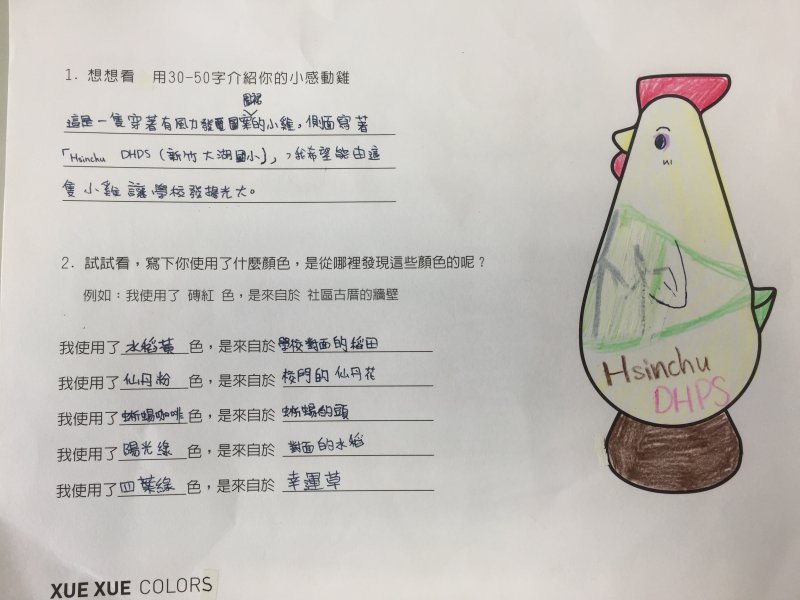 1. 想想看 用30-50字介紹你的小感動雞
圖案
這是一隻穿著有風力發電的小雞，側面寫著
「Hsinchu DHPS (新竹大湖國小)」，我希望能由這
隻小雞讓學校發揚光大。
2. 試試看，寫下你使用了什麼顏色，是從哪裡發現這些顏色的呢？
例如：我使用了 磚紅 色，是來自於 社區古厝的牆壁
我使用了 水稻黃 色，是來自於 學校對面的稻田
我使用了 仙丹粉 色，是來自於 校門的仙丹花
我使用了 蜥蜴咖啡 色，是來自於 蜥蜴的頭
我使用了 陽光綠 色，是來自於 對面的水稻
我使用了 四葉綠 色，是來自於 幸運草
Hsinchu
DHPS
XUE XUE COLORS